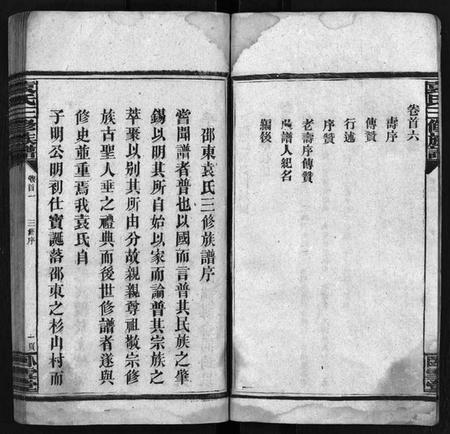 卷首六
壽序
傳贊
行述
序贊
老壽序傳贊
陽譜人紀名
編後
邵東袁氏三修族譜序
嘗聞譜者普也以國而言普其民族之肇
錫以明其所自始以家而論普其宗族之
萃聚以別其所由分故親親尊祖敬宗修
族古聖人垂之禮典而後世修譜者遂與
修史並重焉我袁氏自
子明公明初仕寶誕落邵東之杉山村而
袁氏三修族譜
卷首一
三修序
一頁